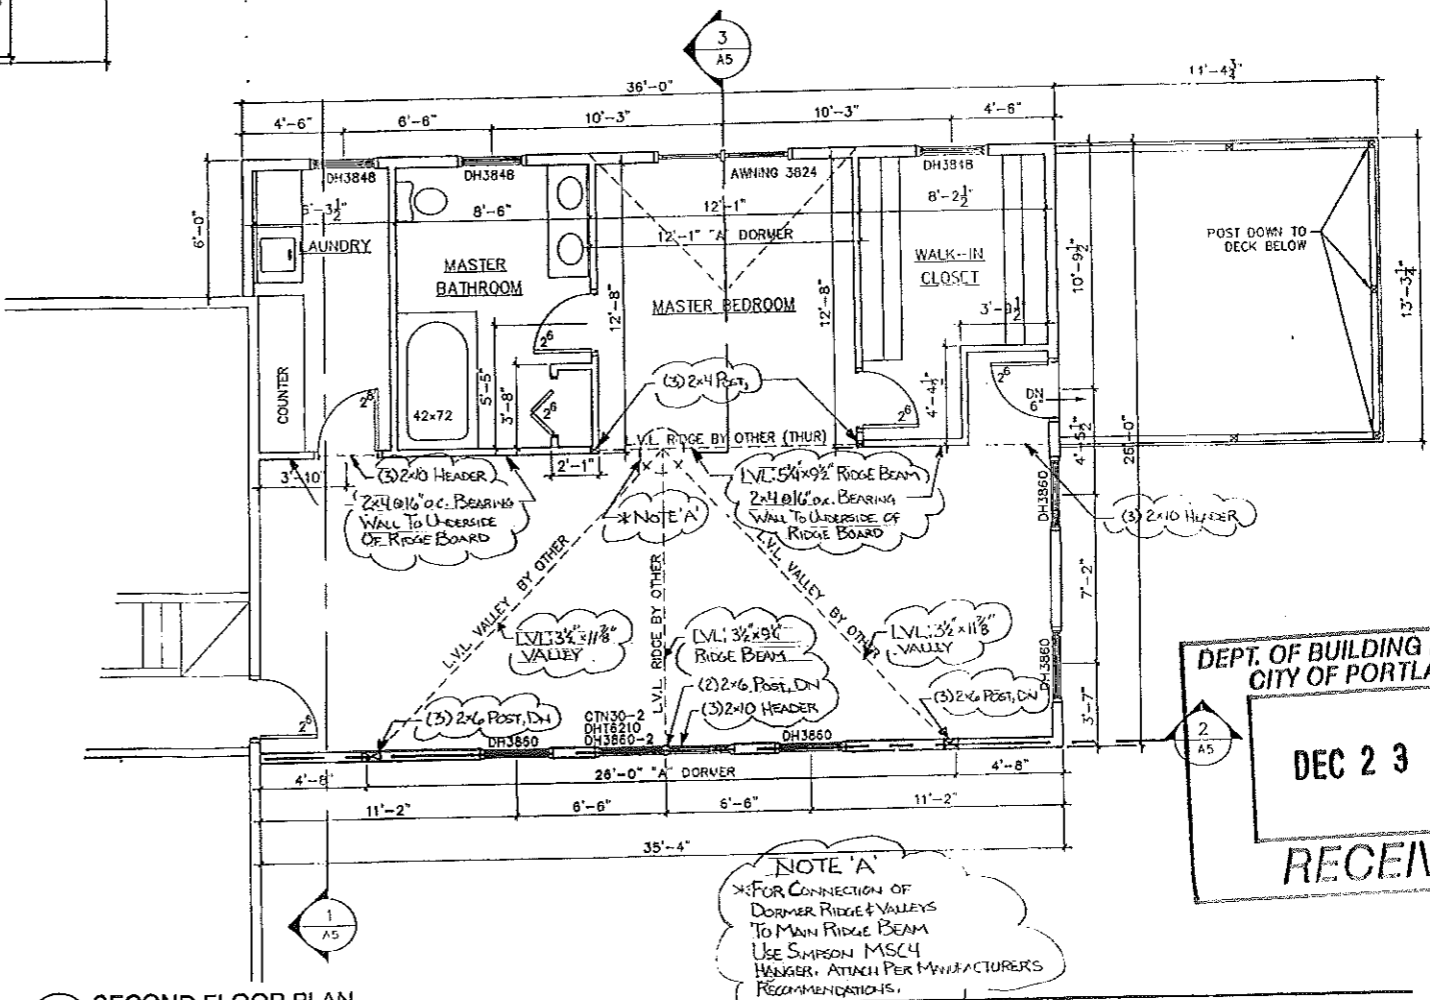 3
A5
36'-0"
11'-4 3/4"
4'-6"
6'-6"
10'-3"
10'-3"
4'-6"
DH3848
DH3848
AWNING 3824
DH3848
6'-0"
8'-6"
12'-1"
8'-2 1/2"
12'-1" "A" DORMER
LAUNDRY
MASTER
BATHROOM
MASTER BEDROOM
WALK-IN
CLOSET
POST DOWN TO
DECK BELOW
10'-9 1/2"
13'-3 1/2"
12'-8"
12'-8"
2⁶
5'-5"
3'-8"
4'-4 1/2"
COUNTER
42x72
2⁶
2⁶
2⁶
2⁶
DN
6"
4'-5 1/2"
26'-0"
(3) 2x4 POST,
V.L. RIDGE BY OTHER (THUR)
3'-10"
2'-1"
(3) 2x10 HEADER
2x4 @ 16" o.c. BEARING
WALL TO UNDERSIDE
OF RIDGE BOARD
* NOTE 'A'
LVL: 5 1/4 x 9 1/2" RIDGE BEAM
2x4 @ 16" o.c. BEARING
WALL TO UNDERSIDE OF
RIDGE BOARD
DH3860
(3) 2x10 HEADER
L.V.L. VALLEY BY OTHER
LVL RIDGE BY OTHER
L.V.L. VALLEY BY OTHER
7'-2"
LVL: 3 1/2" x 11 7/8"
VALLEY
LVL: 3 1/2" x 9 1/2"
RIDGE BEAM
LVL: 3 1/2" x 11 7/8"
VALLEY
(2) 2x6 POST, DN
(3) 2x10 HEADER
(3) 2x6 POST, DN
(3) 2x6 POST, DN
DH3860
3'-7"
2⁶
DH3860
CTN30-2
DHT6210
DH3860-2
DH3860
4'-8"
26'-0" "A" DORMER
4'-8"
11'-2"
6'-6"
6'-6"
11'-2"
35'-4"
2
A5
DEPT. OF BUILDING
CITY OF PORTLA
DEC 2 3
RECEI
1
A5
NOTE 'A'
* FOR CONNECTION OF
DORMER RIDGE & VALLEYS
TO MAIN RIDGE BEAM
USE SIMPSON MSC4
HANGER. ATTACH PER MANUFACTURER'S
RECOMMENDATIONS.
SECOND FLOOR PLAN